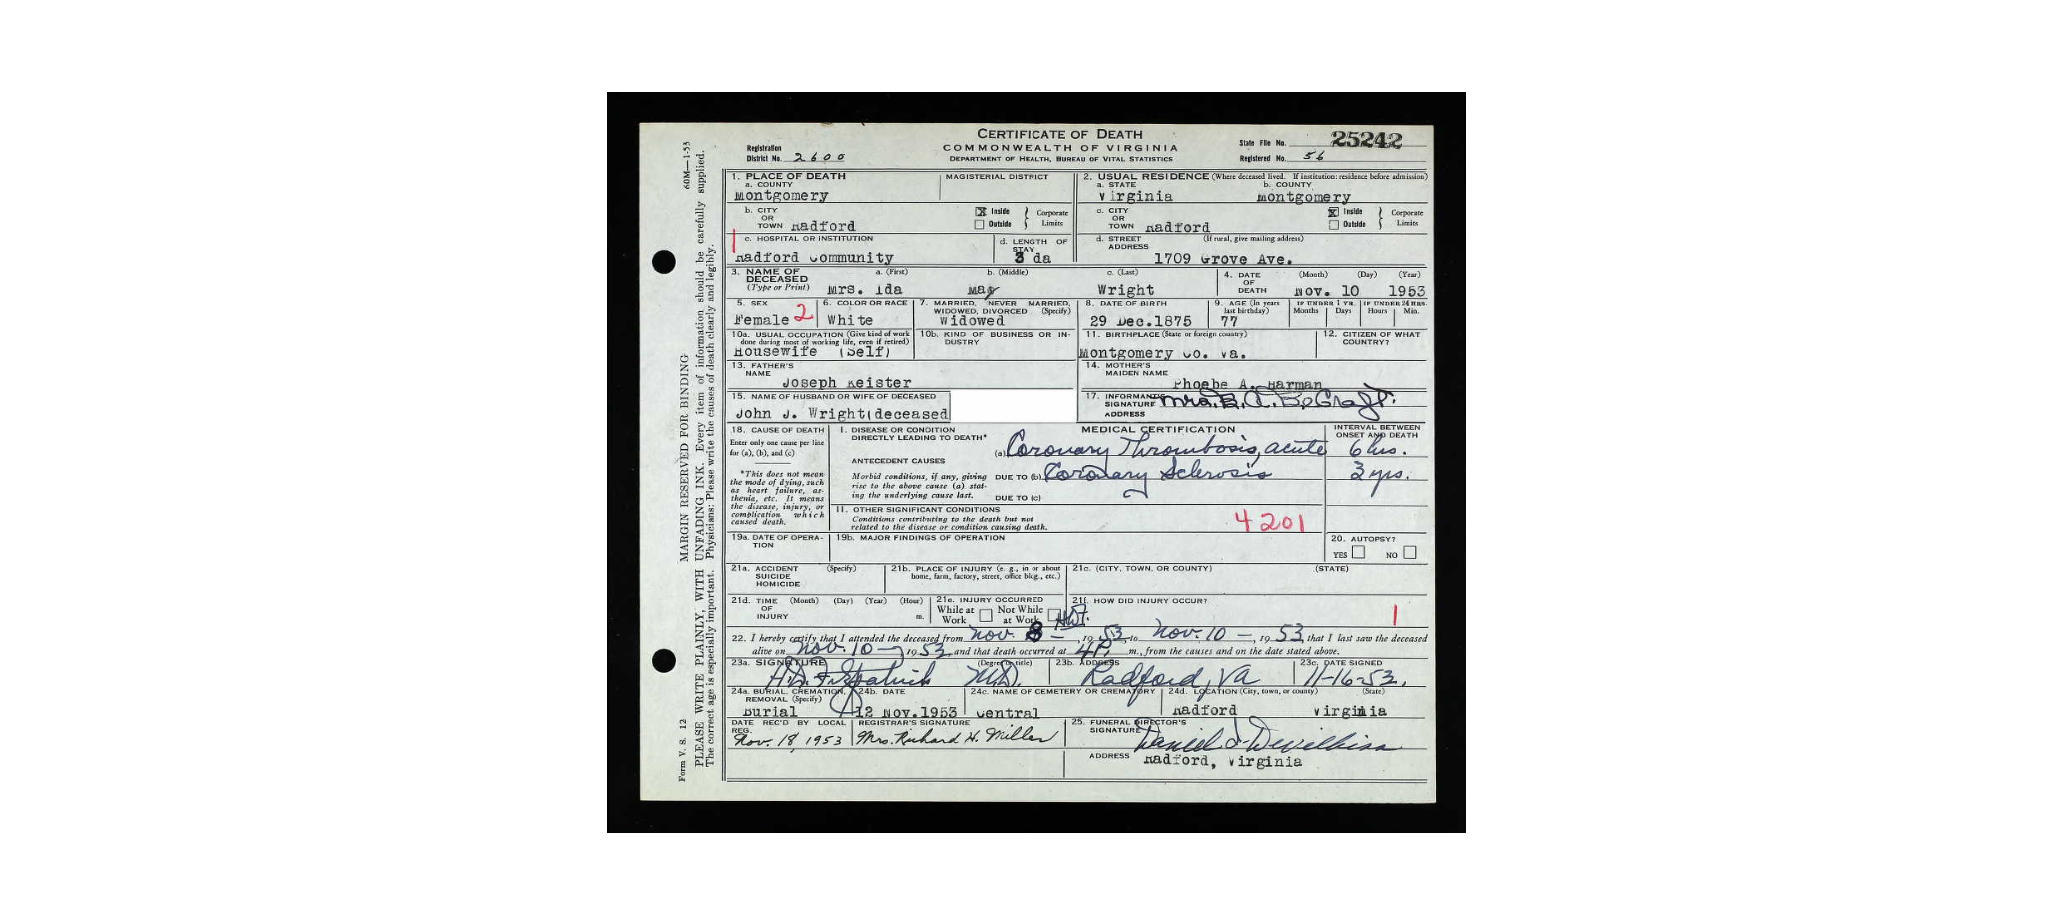 CERTIFICATE OF DEATH
COMMONWEALTH OF VIRGINIA
DEPARTMENT OF HEALTH, BUREAU OF VITAL STATISTICS
Registration District No. 2600
State File No. 25242
Registered No. 56
60M—1-53
MARGIN RESERVED FOR BINDING
PLEASE WRITE PLAINLY, WITH UNFADING INK. Every item of information should be carefully supplied.
The correct age is especially important. Physicians: Please write the causes of death clearly and legibly.
Form V. S. 12
1. PLACE OF DEATH
a. COUNTY
Montgomery
MAGISTERIAL DISTRICT
2. USUAL RESIDENCE (Where deceased lived. If institution: residence before admission)
a. STATE
Virginia
b. COUNTY
Montgomery
b. CITY OR TOWN Radford
Inside
Outside
Corporate Limits
c. CITY OR TOWN Radford
Inside
Outside
Corporate Limits
1
c. HOSPITAL OR INSTITUTION
Radford Community
d. LENGTH OF STAY
3 da
d. STREET ADDRESS (If rural, give mailing address)
1709 Grove Ave.
3. NAME OF DECEASED (Type or Print)
a. (First) b. (Middle) c. (Last)
Mrs. Ida May Wright
4. DATE OF DEATH (Month) (Day) (Year)
Nov. 10 1953
5. SEX
Female 2
6. COLOR OR RACE
White
7. MARRIED, NEVER MARRIED, WIDOWED, DIVORCED (Specify)
Widowed
8. DATE OF BIRTH
29 Dec.1875
9. AGE (In years last birthday)
77
IF UNDER 1 YR. Months Days
IF UNDER 24 HRS. Hours Min.
10a. USUAL OCCUPATION (Give kind of work done during most of working life, even if retired)
Housewife (Self)
10b. KIND OF BUSINESS OR INDUSTRY
11. BIRTHPLACE (State or foreign country)
Montgomery Co. Va.
12. CITIZEN OF WHAT COUNTRY?
13. FATHER'S NAME
Joseph Keister
14. MOTHER'S MAIDEN NAME
Phoebe A. Harman
15. NAME OF HUSBAND OR WIFE OF DECEASED
John J. Wright(deceased
17. INFORMANT'S SIGNATURE Mrs. B. A. DeGraft.
ADDRESS
18. CAUSE OF DEATH
Enter only one cause per line for (a), (b), and (c)
*This does not mean the mode of dying, such as heart failure, asthenia, etc. It means the disease, injury, or complication which caused death.
MEDICAL CERTIFICATION
INTERVAL BETWEEN ONSET AND DEATH
I. DISEASE OR CONDITION DIRECTLY LEADING TO DEATH*
(a) Coronary Thrombosis, acute 6 hrs.
ANTECEDENT CAUSES
Morbid conditions, if any, giving rise to the above cause (a) stating the underlying cause last.
DUE TO (b) Coronary Sclerosis 3 yrs.
DUE TO (c)
II. OTHER SIGNIFICANT CONDITIONS
Conditions contributing to the death but not related to the disease or condition causing death.
4201
19a. DATE OF OPERATION
19b. MAJOR FINDINGS OF OPERATION
20. AUTOPSY?
YES NO
21a. ACCIDENT SUICIDE HOMICIDE (Specify)
21b. PLACE OF INJURY (e. g., in or about home, farm, factory, street, office bldg., etc.)
21c. (CITY, TOWN, OR COUNTY) (STATE)
21d. TIME OF INJURY (Month) (Day) (Year) (Hour) m.
21e. INJURY OCCURRED
While at Work Not While at Work
21f. HOW DID INJURY OCCUR?
1
22. I hereby certify that I attended the deceased from Nov. 8 —, 1953, to Nov. 10 —, 1953, that I last saw the deceased
alive on Nov. 10 —, 1953, and that death occurred at 4P. m., from the causes and on the date stated above.
23a. SIGNATURE (Degree or title)
H.D. Fitzpatrick M.D.
23b. ADDRESS
Radford, Va
23c. DATE SIGNED
11-16-53.
24a. BURIAL, CREMATION, REMOVAL (Specify)
Burial
24b. DATE
12 Nov.1953
24c. NAME OF CEMETERY OR CREMATORY
Central
24d. LOCATION (City, town, or county) (State)
Radford Virginia
DATE REC'D BY LOCAL REG.
Nov. 18, 1953
REGISTRAR'S SIGNATURE
Mrs. Richard H. Miller
25. FUNERAL DIRECTOR'S SIGNATURE
Daniel J. Devilbiss
ADDRESS Radford, Virginia